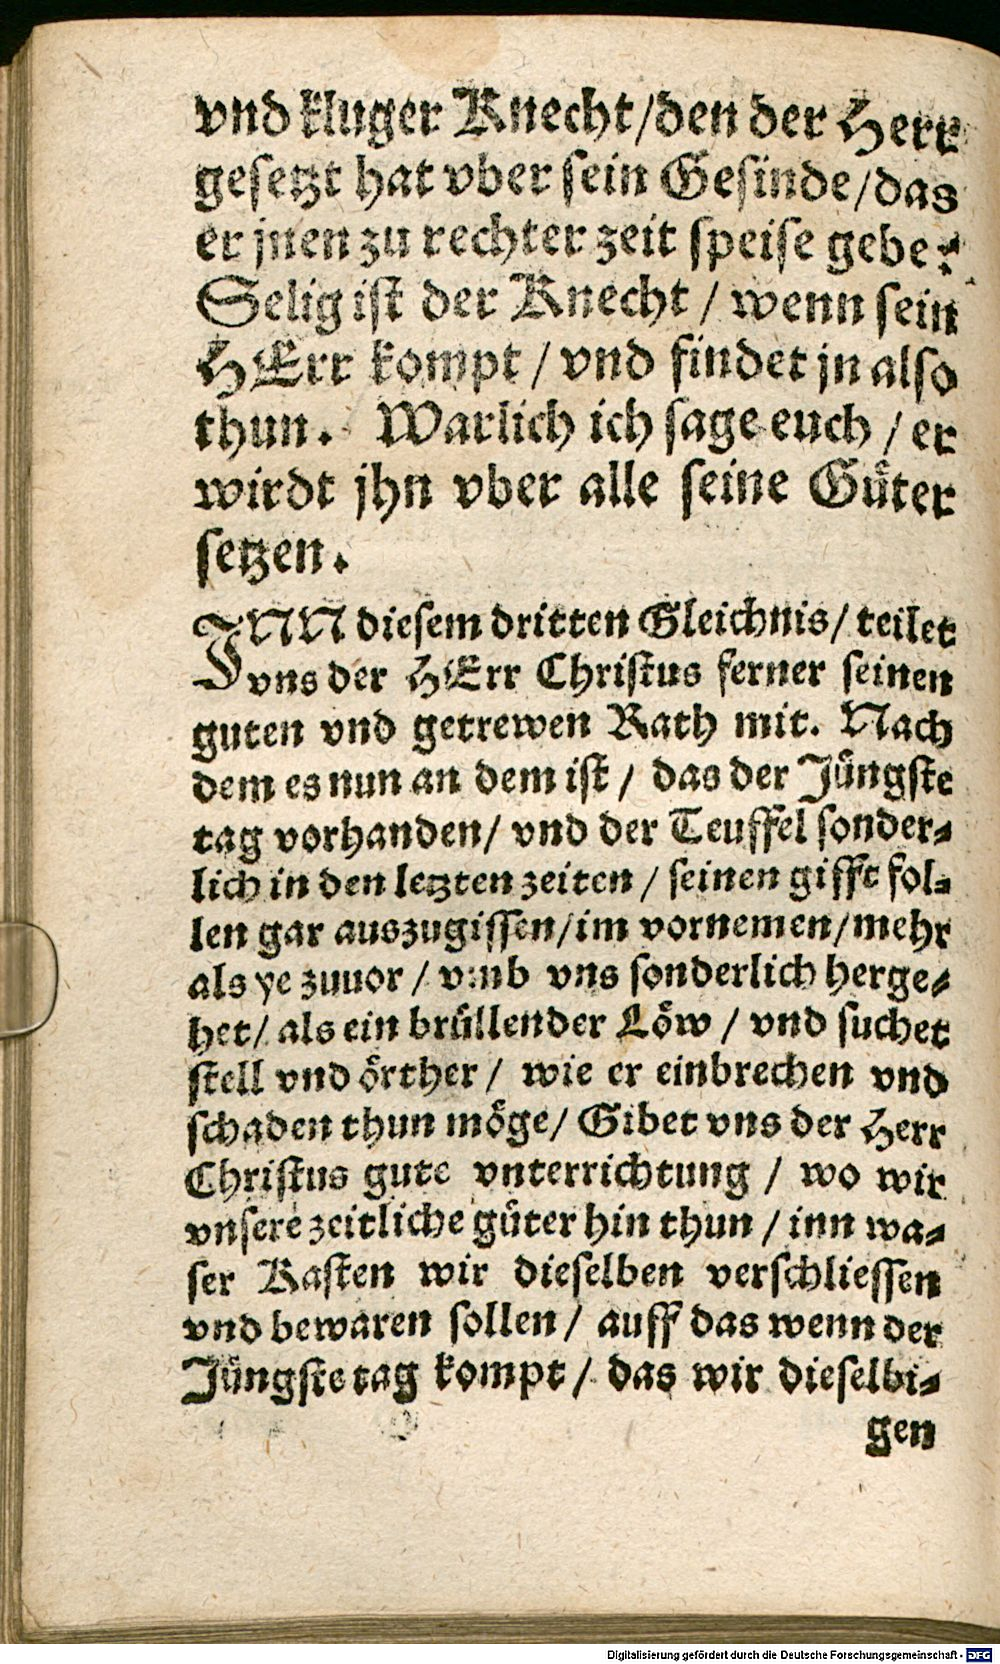 vnd kluger Knecht/den der Herr
gesetzt hat vber sein Gesinde/das
er jnen zu rechter zeit speise gebe?
Selig ist der Knecht / wenn sein
HErr kompt / vnd findet jn also
thun. Warlich ich sage euch / er
wirdt jhn vber alle seine Güter
setzen.
INN diesem dritten Gleichnis/ teilet
vns der HErr Christus ferner seinen
guten vnd getrewen Rath mit. Nach
dem es nun an dem ist / das der Jüngste
tag vorhanden/ vnd der Teuffel sonder-
lich in den letzten zeiten / seinen gifft fol-
len gar auszugissen/im vornemen/mehr
als ye zuuor / vmb vns sonderlich herge-
het/ als ein brüllender Löw / vnd suchet
stell vnd örther / wie er einbrechen vnd
schaden thun möge/ Gibet vns der Herr
Christus gute vnterrichtung / wo wir
vnsere zeitliche güter hin thun / inn wa-
ser Kasten wir dieselben verschliessen
vnd bewaren sollen / auff das wenn der
Jüngste tag kompt / das wir dieselbi-
gen
Digitalisierung gefördert durch die Deutsche Forschungsgemeinschaft - DFG